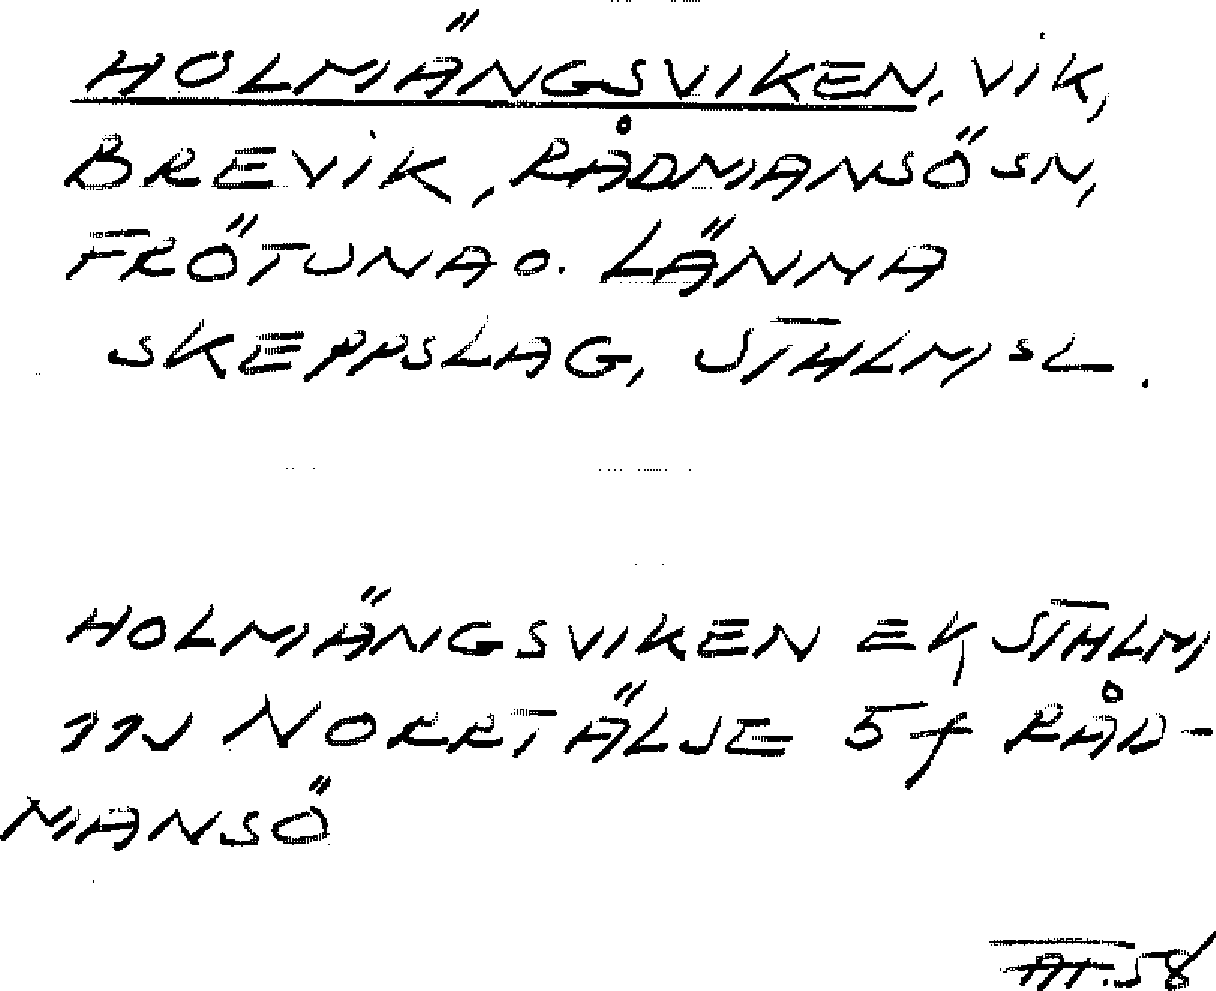 HOLMÄNGSVIKEN, VIK,
BREVIK, RÅDMANSÖ SN,
FRÖTUNA O. LÄNNA
SKEPPSLAG, STHLMS L.
HOLMÄNGSVIKEN EK, STHLM,
11J NORRTÄLJE 5f RÅD-
MANSÖ